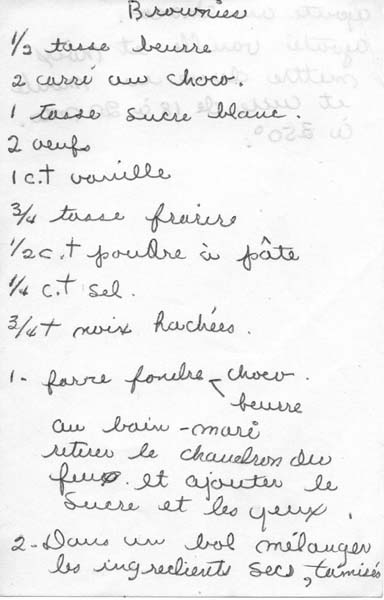 Brownies
1/2 tasse beurre
2 carré au choco.
1 tasse sucre blanc.
2 oeufs
1 c.t vanille
3/4 tasse frarire
1/2 c.t poudre à pâte
1/4 c.t sel.
3/4 t noix hachées.
1- faire fondre choco.
beurre
au bain-mari
retirer le chaudron du
feu et ajouter le
sucre et les yeux.
2- Dans un bol mélanger
les ingredients secs, tamisés
à 350°